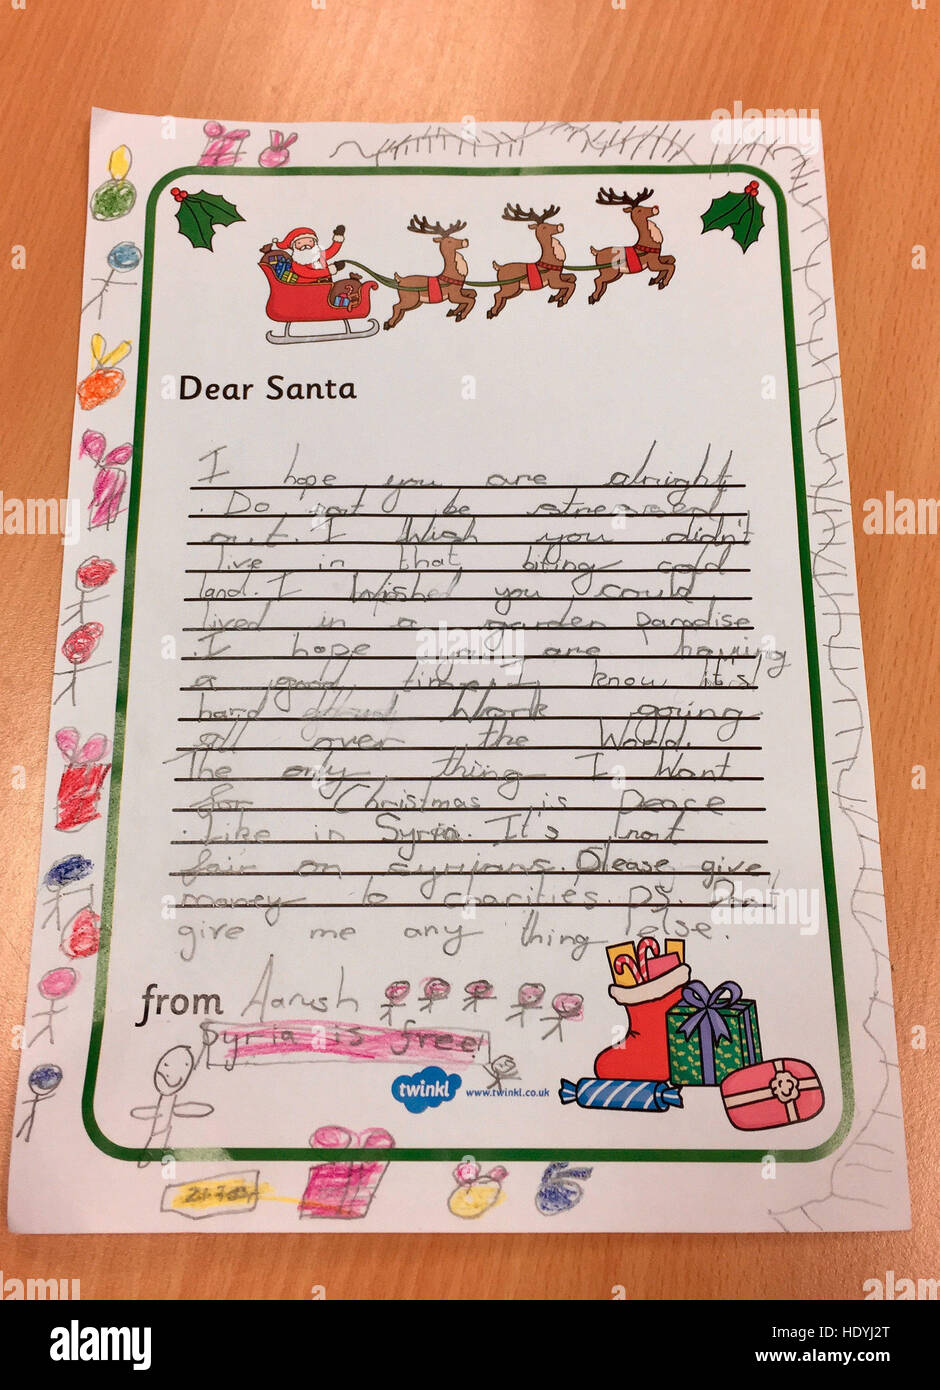 Dear Santa
I hope you are alright
. Do not be stressed
out. I Wish you didn't
live in that biting cold
land. I Wished you could
lived in a garden Paradise
. I hope you are having
a good time. I know it's
hard Work going
all over the World.
The only thing I Want
for Christmas is peace
. Like in Syria. It's not
fair on syrians. Please give
money to charities. PS. Don't
give me any thing else.
from Aarush
Syria is free
twinkl www.twinkl.co.uk
alamy
Image ID: HDYJ2T
www.alamy.com